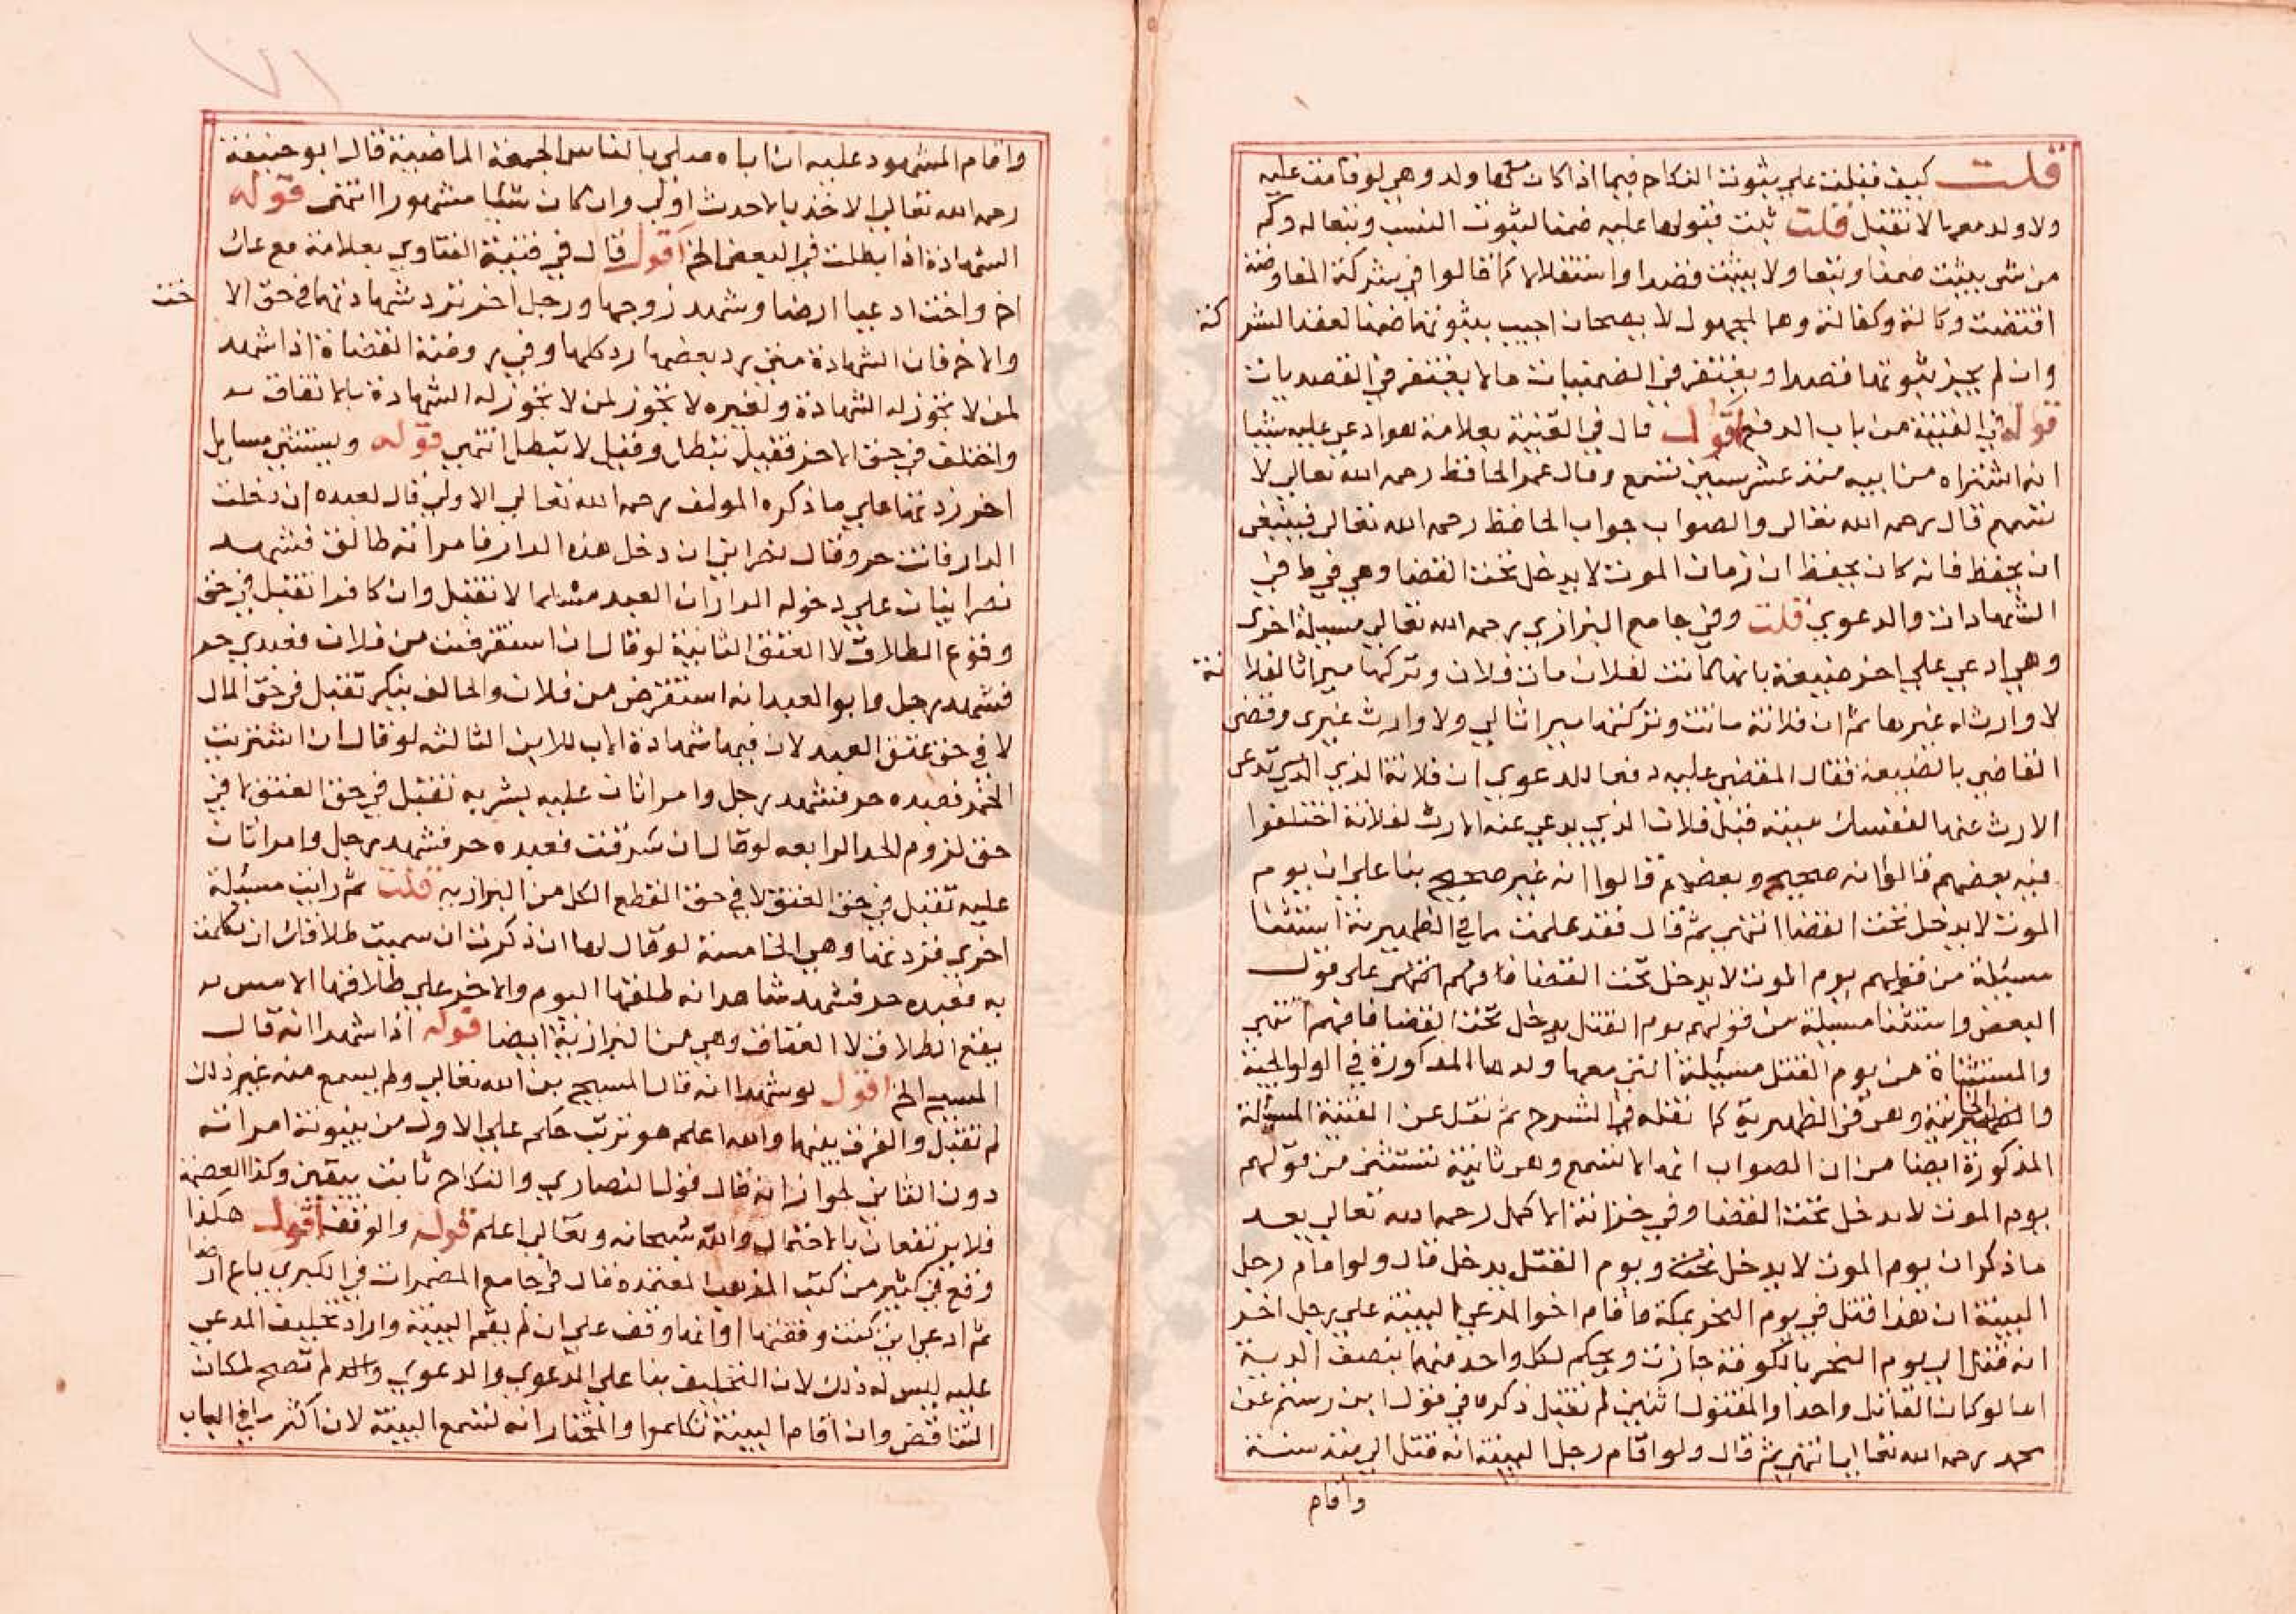 قلت كيف فقبلت علي بثبوت النكاح فيما اذا كان معها ولد وهي لو قامت عليه
ولا ولد معها لا تقبل قلت ثبت قبولها عليه ضمنا لثبوت النسب وتبعا له وكم
من شي يثبت ضمنا وتبعا ولا يثبت قصدا واستقلالا كما قالوا في شركة المفاوضة
اقتضت وكالة وكفالة وهما لمجهول لا يصحان اجيب بثبوتهما ضمنا لعقد الشر كة
وان لم يجيز ثبوتها قصدا ويغتفر في الضمنيات ما لا يغتفر في القصديات
قوله في القنية من باب الدفع اقول قال في القنية بعلامة ادعي عليه شيا
انه اشتراه من ابيه منذ عشر سنين تسمع وقال عمر الحافظ رحمه الله تعالي لا
تسمع قال رحمه الله تعالي والصواب جواب الحافظ رحمه الله تعالي فينبغي
ان يحفظ فانه كان يحفظ ان زمان الموت لا يدخل تحت القضا وهي في
الشهادات والدعوي قلت وفي جامع البزازي رحمه الله تعالي مسيلة اخري
وهي ادعي علي اخر ضيعة بانها كانت لفلان مات فلان وتركها ميراثا لفلا نة
لا وارث له غيرها ثم ان فلانة ماتت وتركتها ميراثا لي ولا وارث غيري وقضي
القاضي بالضيعة فقال المقضي عليه دفعا للدعوي ان فلانة الذي تدعي
الارث عنها لنفسك ميتة قبل فلان الذي يدعي عنه الارث لفلانة اختلفوا
فيه بعضهم قالوا انه صحيح وبعضهم قالوا انه غير صحيح بنا علي ان يوم
الموت لا يدخل تحت القضا انتهي ثم قال فقد علمت ما في الظهيرية استثنا
مسيلة من قولهم يوم الموت لا يدخل تحت القضا فافهم انتهي علي قول
البعض واستثنا مسيلة من قولهم يوم القتل يدخل تحت القضا فافهم انتهي
والمستثناة من يوم القتل مسيلة التي معها ولدها المذكورة في الولوالجية
وهي في الظهيرية كما نقله في الشرح ثم نقل عن القنية المسيلة
المذكورة ايضا من ان الصواب انها لا تسمع وهي ثانية تستثني من قولهم
يوم الموت لا يدخل تحت القضا وفي خزانة الاكمل رحمه الله تعالي بعد
ما ذكر ان يوم الموت لا يدخل تحت ويوم القتل يدخل قال ولو اقام رجل
البينة ان هذا قتل في يوم النحر بمكة فاقام اخو المدعي البينة علي رجل اخر
انه قتل ابي يوم النحر بالكوفة جازت ويحكم لكل واحد منهما بنصف الدية
اما لو كان القاتل واحدا والمقتول اثنين لم تقبل ذكره في قول ابن رستم عن
محمد رحمه الله تعالي انتهي ثم قال ولو اقام رجل البينة انه قتل ابي منذ سنة
واقام
٧١
واقام المشهود عليه ان اباه صلي بالناس الجمعة الماضية قال ابو حنيفة
رحمه الله تعالي الاخذ بالاحدث اولي وان كان شيا مشهورا انتهي قوله
الشهادة اذا بطلت في البعض الخ اقول قال في قنية الفتاوي بعلامة
اخ واخت ادعيا ارضا وشهد زوجها ورجل اخر ترد شهادتهما في حق الا خت
والاخ فان الشهادة متي رد بعضها رد كلها وفي روضة القضاة اذا شهد
لمن لا تجوز له الشهادة ولغيره لا تجوز لمن لا تجوز له الشهادة بالاتفاق
واختلف في حق الاخر فقيل تبطل وقيل لا تبطل انتهي قوله ويستثني مسايل
اخر زدتها علي ما ذكره المولف رحمه الله تعالي الاولي قال لعبده ان دخلت
الدار فانت حر وقال نصراني ان دخل هذه الدار فامراته طالق فشهد
نصرانيان علي دخوله الدار ان العبد مسلما لا تقبل وان كافرا تقبل في حق
وقوع الطلاق لا العتق الثانية لو قال ان استقرضت من فلان فعبدي حر
فشهد رجل وابو العبد انه استقرض من فلان والحالف ينكر تقبل في حق المال
لا في حق عتق العبد لان فيها شهادة الاب للابن الثالثة لو قال ان اشتريت
الخمر فعبده حر فشهد رجل وامراتان عليه بشربه تقبل في حق العتق لا في
حق لزوم الحد الرابعة لو قال ان سرقت فعبده حر فشهد رجل وامراتان
عليه تقبل في حق العتق لا في حق القطع الكل من البزازية قلت ثم رايت مسيلة
اخري فزدتها وهي الخامسة لو قال لها ان ذكرت ان سميت طلاقك ان تكلمت
به فعبده حر فشهد شاهد انه طلقها اليوم والاخر علي طلاقها الامس
يقع الطلاق لا العتاق وهي من البزازية ايضا قوله اذا شهدا انه قال
المسيح الخ اقول لو شهدا انه قال المسيح بن الله تعالي ولم يسمع منه غير ذلك
لم تقبل والفرق بينهما والله اعلم هو ترتب حكم علي الاول من بينونة امراته
دون الثاني لجواز انه قال قول النصاري والنكاح ثابت بيقين وكذا العصمة
فلا يرتفعان بالاحتمال والله سبحانه وتعالي اعلم قوله والوقف اقول هكذا
وقع في كثير من كتب المذهب المعتمدة قال في جامع المضمرات في الكبري باع ارضا
ثم ادعي اني كنت وقفتها او انها وقف علي ان لم يقم البينة واراد تحليف المدعي
عليه ليس له ذلك لان التحليف بنا علي الدعوي والدعوي لم تصح لمكان
التناقض وان اقام البينة تكلموا والمختار انه تسمع البينة لان اكثر